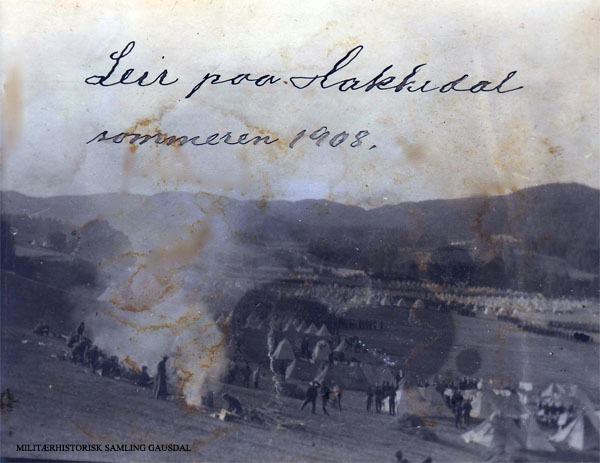 Leir paa Hakkedal
sommeren 1908.
MILITÆRHISTORISK SAMLING GAUSDAL